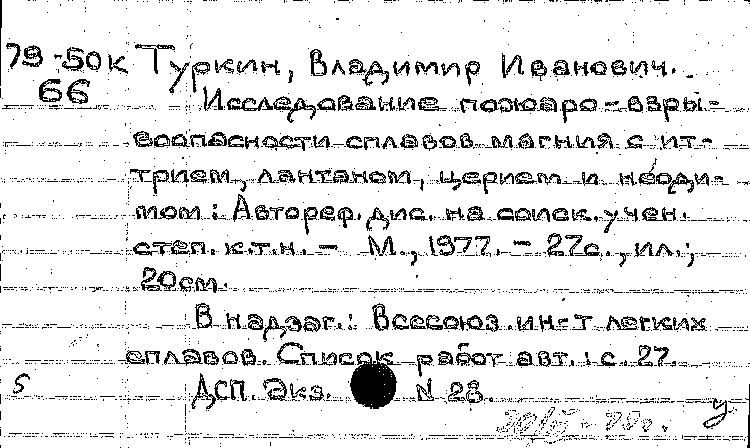 79-50к Туркин, Владимир Иванович.
66 Исследование пожаро-взры-
воопасности сплавов магния с ит-
трием, лантаном, церием и неоди-
мом: Автореф. дис. на соиск. учен.
степ. к.т.н. - М., 1977. - 27с., ил.;
20см.
В надзаг.: Всесоюз. ин-т легких
сплавов. Список работ авт.: с. 27.
5 ДСП. Экз. N 28.
у